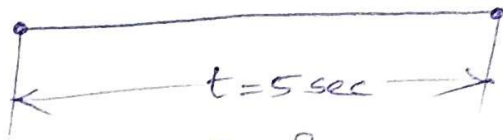 t = 5 sec